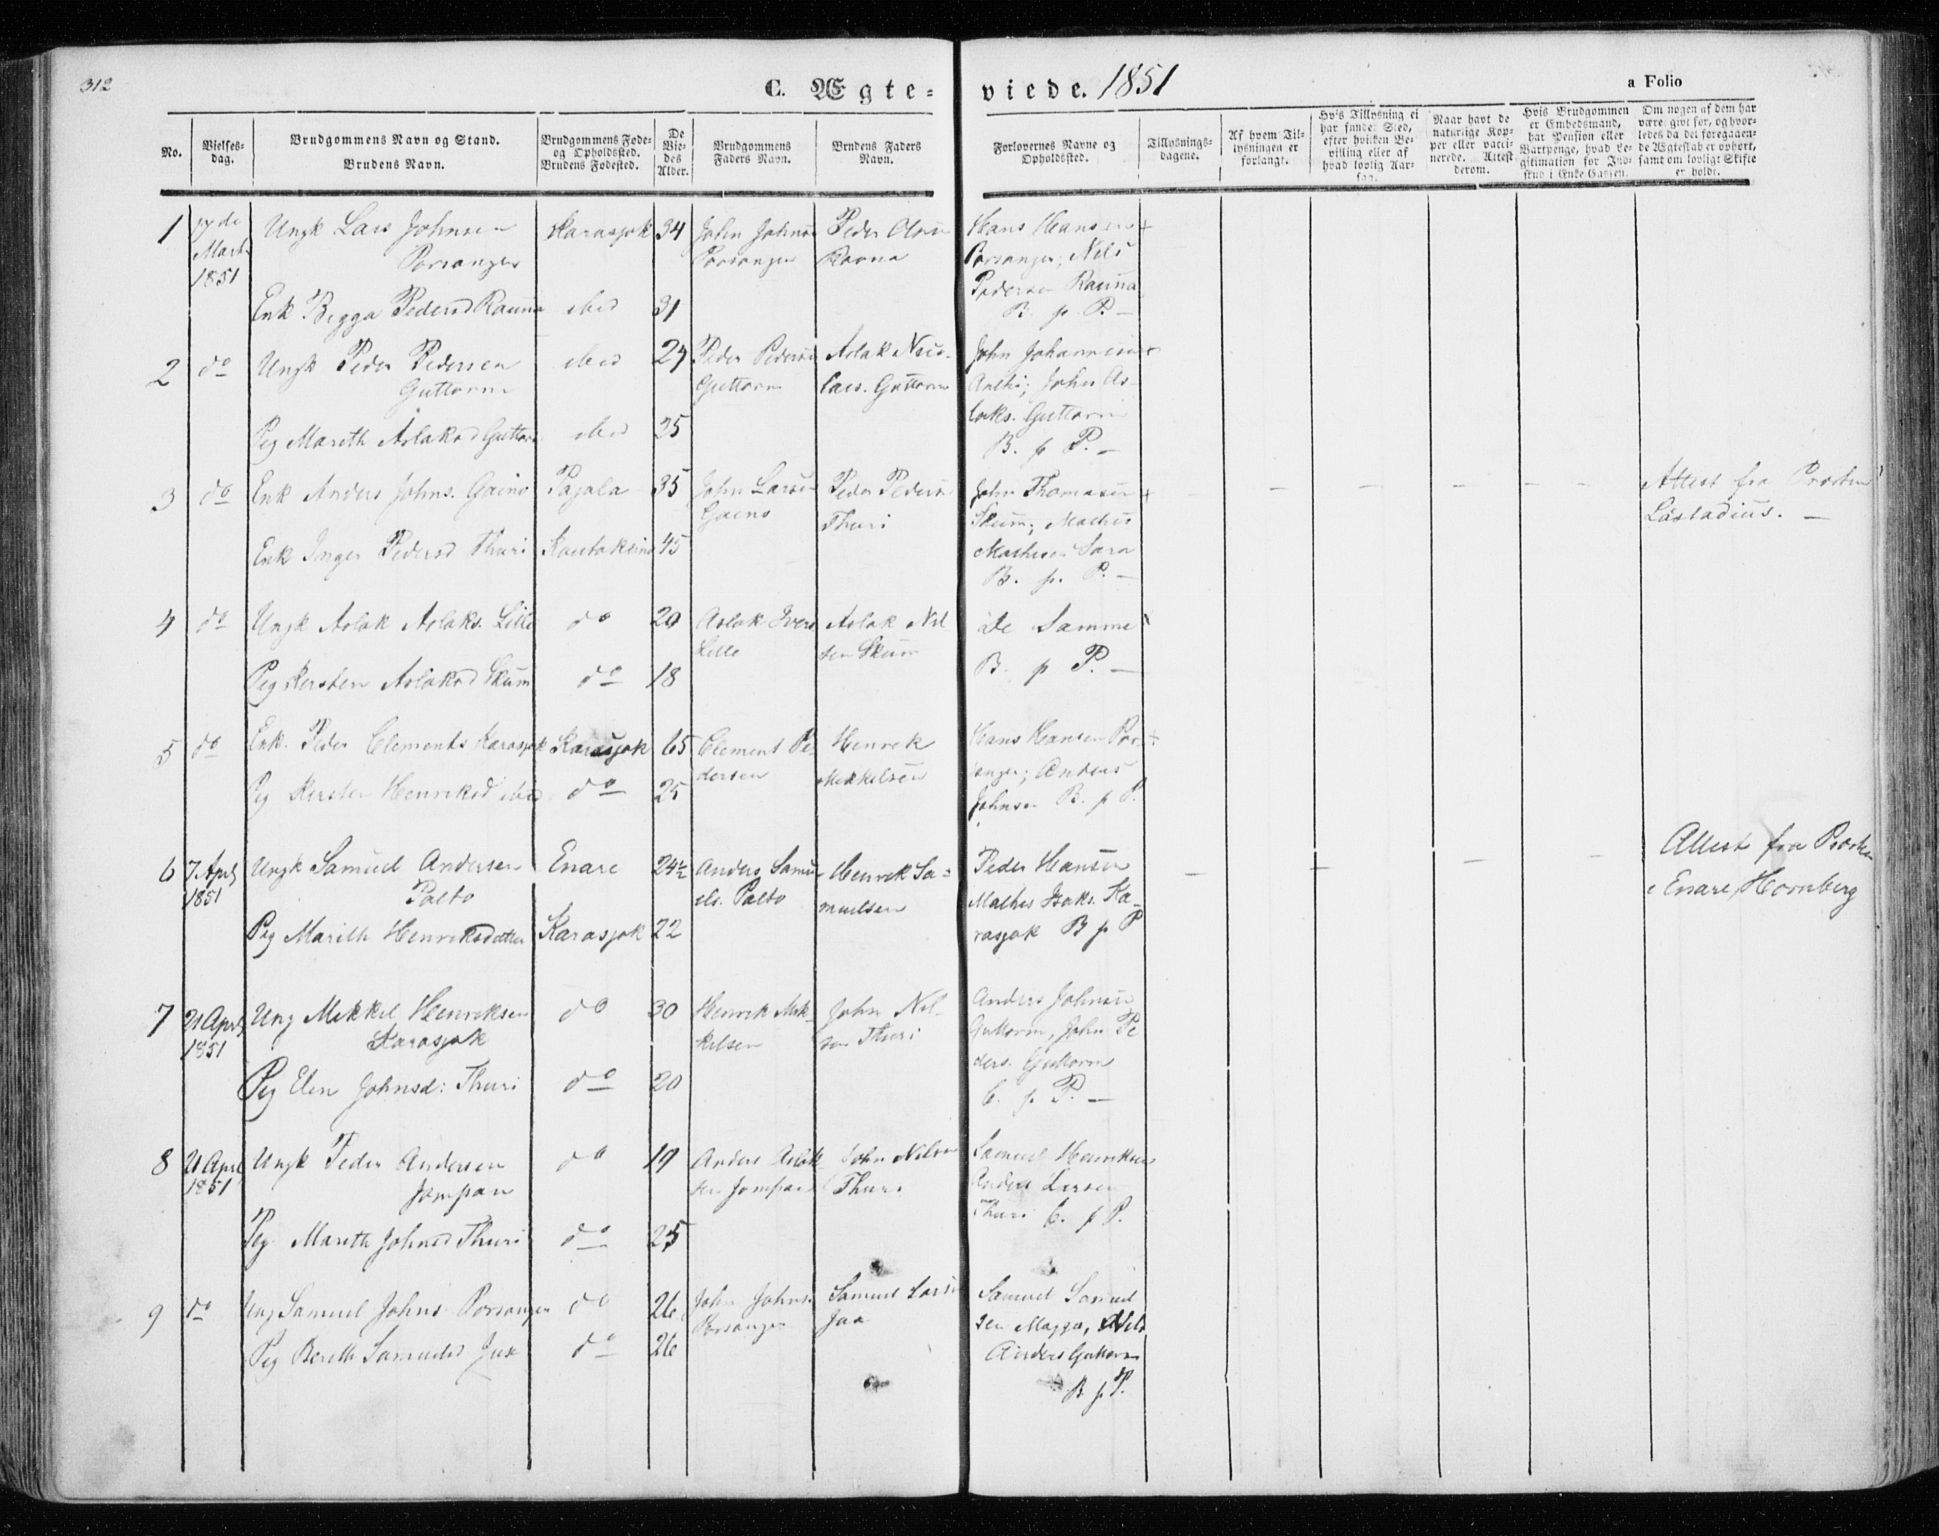 312
C. Ægte-
viede. 1851
a Folio
No.
Vielses-
dag.
Brudgommens Navn og Stand.
Brudens Navn.
Brudgommens Føde-
og Opholdssted.
Brudens Fødested.
De
Vie-
des
Alder.
Brudgommens
Faders Navn.
Brudens Faders
Navn.
Forlovernes Navne og
Opholdssted.
Tillysnings-
dagene.
Af hvem Til-
lysningen er
forlangt.
Hvis Tillysning ei
har fundet Sted,
efter hvilken Be-
villing eller af
hvad lovlig Aar-
sag.
Naar havt de
naturlige Kop-
per eller vacci-
nerede. Attest
derom.
Hvis Brudgommen
er Embedsmand,
har Pension eller
Vartpenge, hvad Le-
gitimation for Ind-
skud i Enke Cassen.
Om nogen af dem har
være givt før, og hvor-
ledes da det foregaaen-
de Ægteskab er ophørt,
samt om lovligt Skifte
er holdt.
1 Marts 1851 Ungk Lars Johnsen Porsanger Karasjok 34 John Johns Porsanger Peder Olsen Ravna Hans Hansen Porsanger, Nils Pedersen Rauna B. p. P. —
Enk Bigga Pedersd Rauna ibid 31
2 do Ungk Peder Pedersen Guttorm ibid 27 Peder Peders Guttorm Aslak Guttorm John Johannesen John As-laks. Guttorm B. p P. —
Pig Mareth Aslaksd Guttorm ibid 25
3 do Enk Anders Johns. Gaino Pajala 35 John Larsen Gaino Peder Peders Thuri John Thomasen Skum; Mathis Mathisen Sara B. p. P. — Attest fra Præsten Læstadius. —
Enk Inger Pedersd Thuri Kautokeino 45
4 do Ungk Aslak Aslaks. Lille do 20 Aslak Ivers Lille Aslak Nilsen Skum De Samme B. p P. —
Pig Kersten Aslaksd Skum do 18
5 do Enk. Peder Clements Karasjok Karasjok 65 Clement Pedersen Henrik Mikkelsen Hans Hansen Porsanger; Anders Johnsen B. p P.
Pig Kersten Henriksd ibid do 25
6 7 April 1851 Ungk Samuel Andersen Palto Enare 24½ Anders Samuels. Palto Henrik Samuelsen Peder Hansen Mathis Isaks. Karasjok B p P Attest fra Præsten i Enare, Hornberg
Pig Marith Henriksdatter Karasjok 22
7 21 April 1851 Ung Mikkel Henriksen Karasjok do 30 Henrik Mikkelsen John Nilsen Thuri Anders Johnsen Guttorm, John Peders. Guttorm C. p. P. —
Pig Elen Johnsd: Thuri do 20
8 21 April 1851 Ungk Peder Andersen Jompan do 19 Anders Aslaksen Jompan John Nilsen Thuri Samuel Henriksen Anders Larsen Thuri C. p P.
Pig Mareth Johnsd Thuri do 25
9 do Ung Samuel Johns Porsanger do 26 John Johns. Porsanger Samuel Larsen Jux Samuel Samuelsen Magga, Nils Anders Guttorm B p P.
Pig Bereth Samuelsd Jux do 26